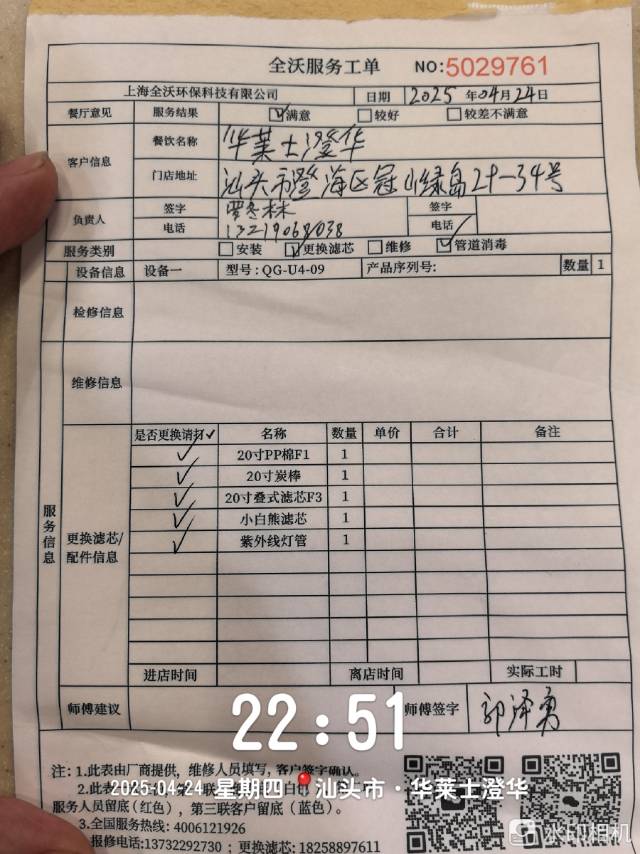 全沃服务工单 NO:5029761
上海全沃环保科技有限公司 日期 2025年04月24日
餐厅意见 服务结果 ☑满意 □较好 □较差不满意
客户信息 餐饮名称 华莱士澄华
门店地址 汕头市澄海区冠山绿岛29-34号
负责人 签字 签字
电话 13219068038 电话
服务类别 □安装 ☑更换滤芯 □维修 ☑管道消毒
设备信息 设备一 型号:QG-U4-09 产品序列号: 数量 1
检修信息
维修信息
服务信息
更换滤芯/配件信息
是否更换请打✓ 名称 数量 单价 合计 备注
✓ 20寸PP棉F1 1
✓ 20寸炭棒 1
✓ 20寸叠式滤芯F3 1
✓ 小白熊滤芯 1
✓ 紫外线灯管 1
进店时间 离店时间 实际工时
师傅建议 师傅签字 郭泽勇
22:51
2025-04-24 星期四 汕头市·华莱士澄华
注:1.此表由厂商提供,维修人员填写,客户签字确认。
2.此表
服务人员留底(红色),第三联客户留底(蓝色)。
3.全国服务热线:4006121926
报修电话:13732292730;更换滤芯:18258897611
水印相机